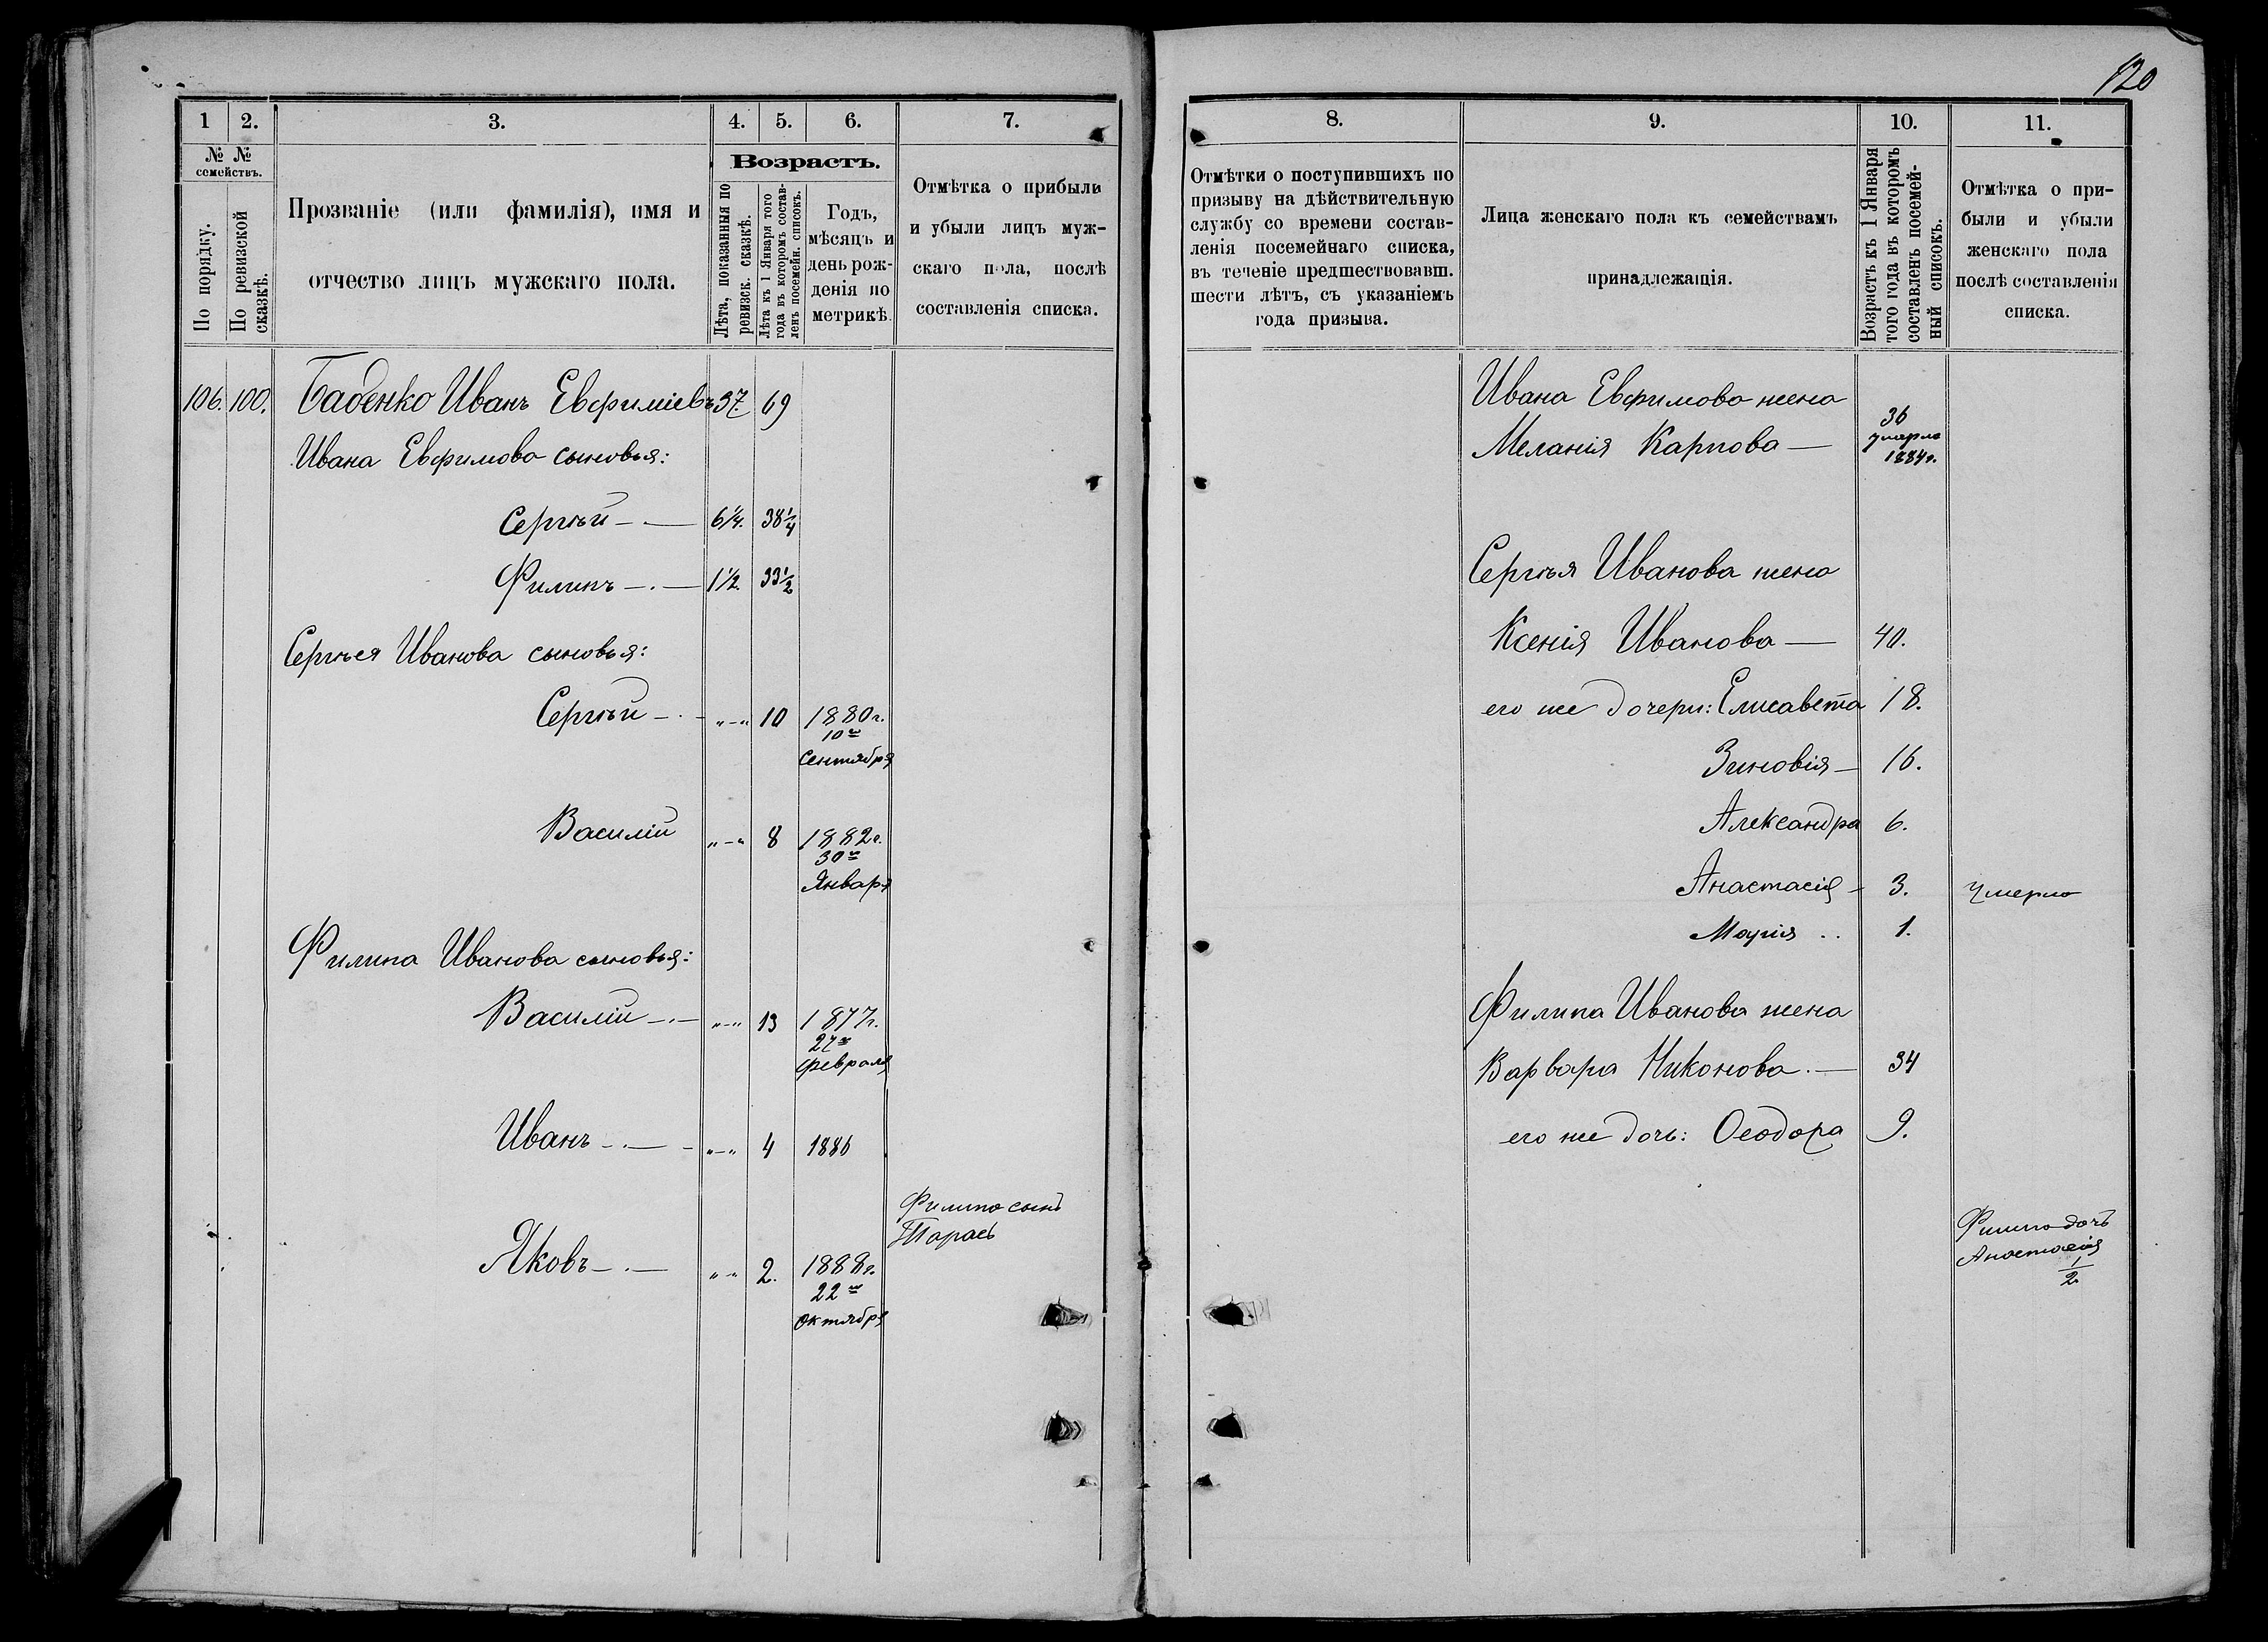 120
1 2. 3. 4. 5. 6. 7.
№ № семействъ.
По порядку.
По ревизской сказкѣ.
Прозваніе (или фамилія), имя и
отчество лицъ мужскаго пола.
Возрастъ.
Лѣта, показанныя по
ревизск. сказкѣ.
Лѣта къ 1 Января того
года въ которомъ состав-
ленъ посемейн. списокъ.
Годъ,
мѣсяцъ и
день рож-
денія по
метрикѣ.
Отмѣтка о прибыли
и убыли лицъ муж-
скаго пола, послѣ
составленія списка.
106. 100. Бабенко Иванъ Евфиміевъ 37. 69
Ивана Евфимова сыновья:
Сергѣй — 6 1/4. 38 1/4
Филипъ — 1 1/2. 33 1/2
Сергѣея Иванова сыновья:
Сергѣй — „—„ 10 1880 г.
10го
Сентября
Василій „—„ 8 1882 г.
30го
Января
Филипа Иванова сыновья:
Василій — „—„ 13 1877 г.
27го
февраля
Иванъ — „—„ 4 1886
Филипа сынъ
Тарасъ
Яковъ — „—„ 2. 1888 г.
22го
октября
8. 9. 10. 11.
Отмѣтки о поступившихъ по
призыву на дѣйствительную
службу со времени состав-
ленія посемейнаго списка,
въ теченіе предшествовавш.
шести лѣтъ, съ указаніемъ
года призыва.
Лица женскаго пола къ семействамъ
принадлежащія.
Возрастъ къ 1 Января
того года въ которомъ
составленъ посемей-
ный списокъ.
Отмѣтка о при-
были и убыли
женскаго пола
послѣ составленія
списка.
Ивана Евфимова жена
Меланія Карпова — 36
умерла
1884 г.
Сергѣя Иванова жена
Ксенія Иванова — 40.
его же дочери: Елисавета 18.
Зиновія — 16.
Александра 6.
Анастасія — 3. умерла
Марія .. 1.
Филипа Иванова жена
Варвара Никонова. — 34
его же дочь: Ѳеодора 9.
Филипа дочь
Анастасія
1/2